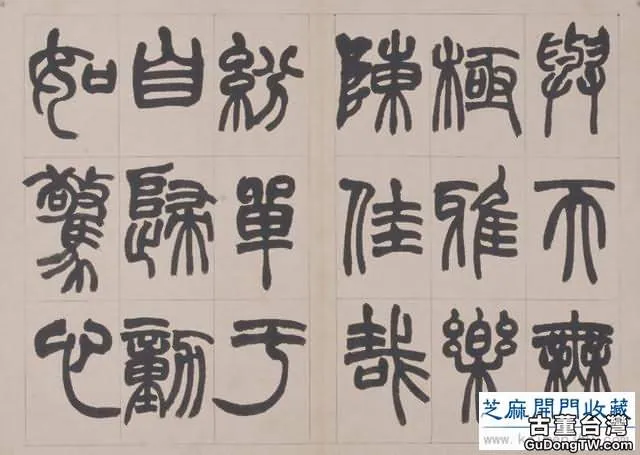 與天無
極雅樂
陳佳哉
紛單于
自歸動
如驚心
芝麻開門收藏
古董台灣
GuDongTW.com